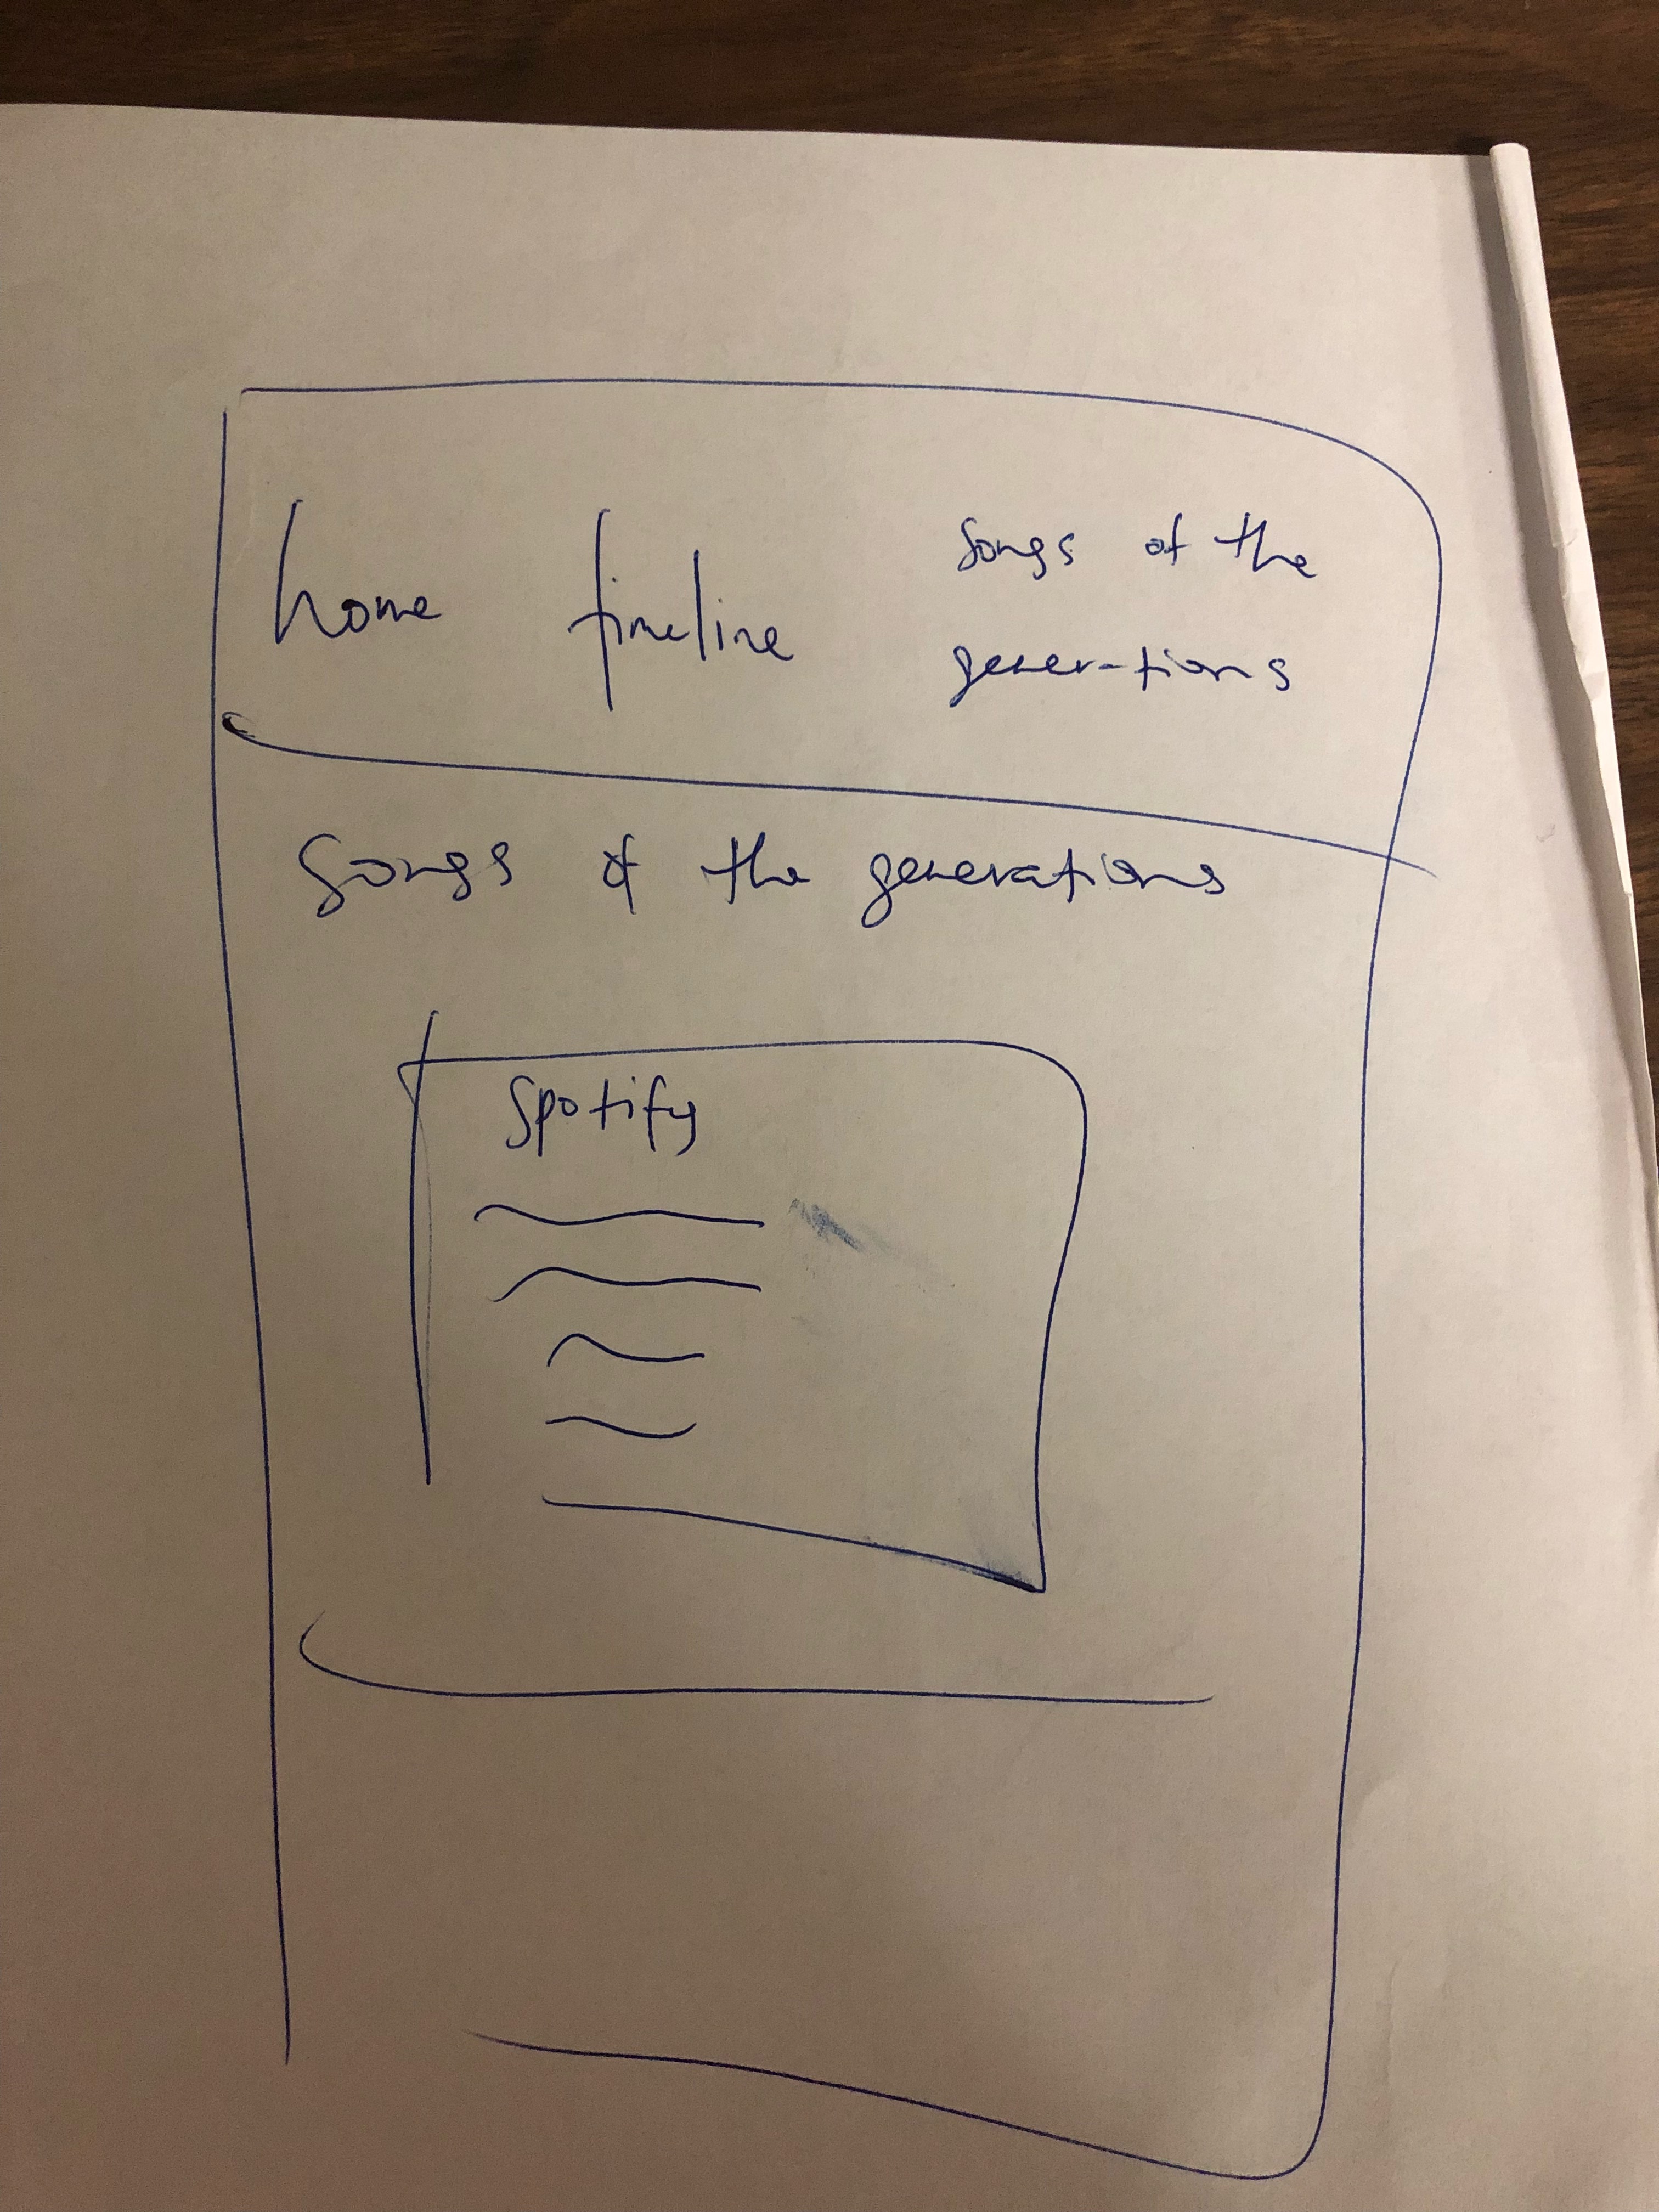 home timeline songs of the
generations
Songs of the generations
Spotify